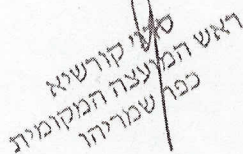 סרני קורשיא
ראש המועצה המקומית
כפר שמריהו